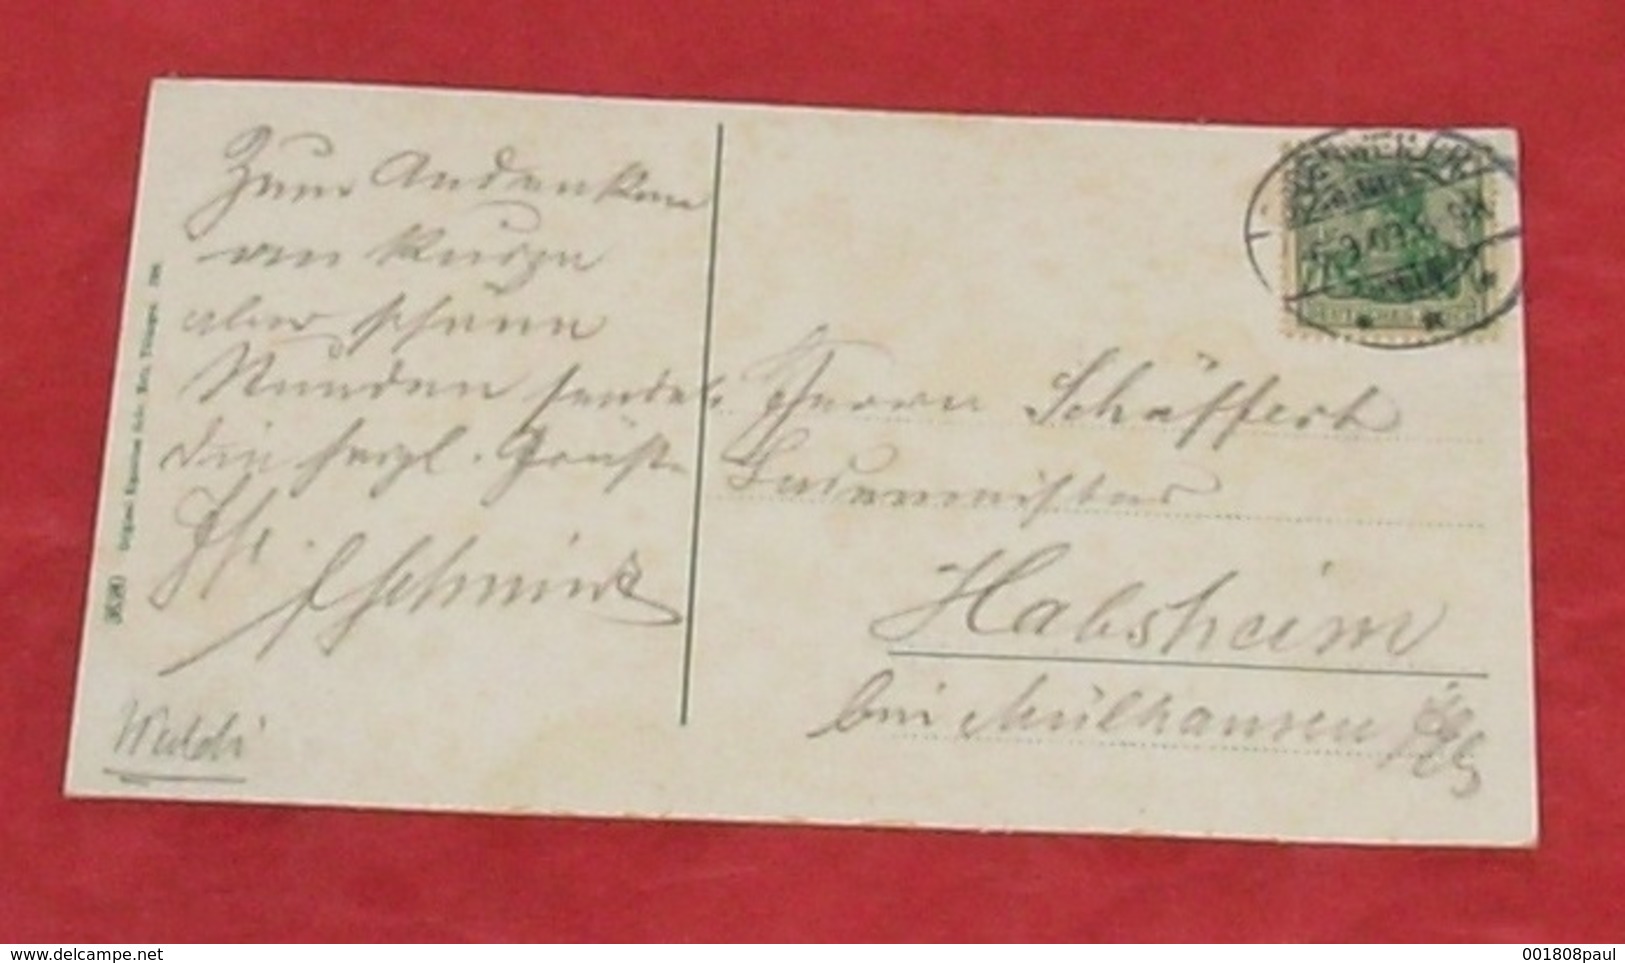 Zum Andenken
an kurze
aber schöne
Stunden sendet
die herzl. Grüße
Ihr
Schmidt
Waldi
Herrn Schäffert
Lademeister
Habsheim
bei Mülhausen
DEUTSCHES REICH
delcampe.net
001808paul